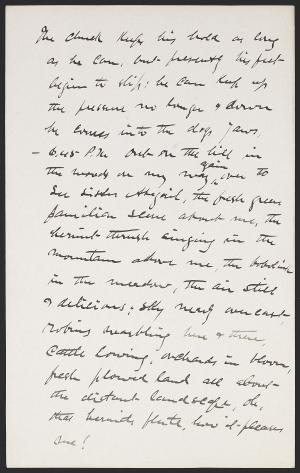 The chuck keeps his hold as long
as he can, but presently his feet
begin to slip; he can keep up
the pressure no longer & down
he comes into the dogs jaws.
— 6.45 P.M. Out on the hill in
the woods on my way again over to
see sister Abigail, the fresh green
familiar scene about me, the
hermit thrush singing in the
mountain above me, the bobolink
in the meadow, the air still
& delicious; sky nearly overcast,
robins warbling here & there,
Cattle lowing, orchards in bloom,
fresh plowed land all about
the distant landscape, oh,
that hermits flute, how it pleases
me!